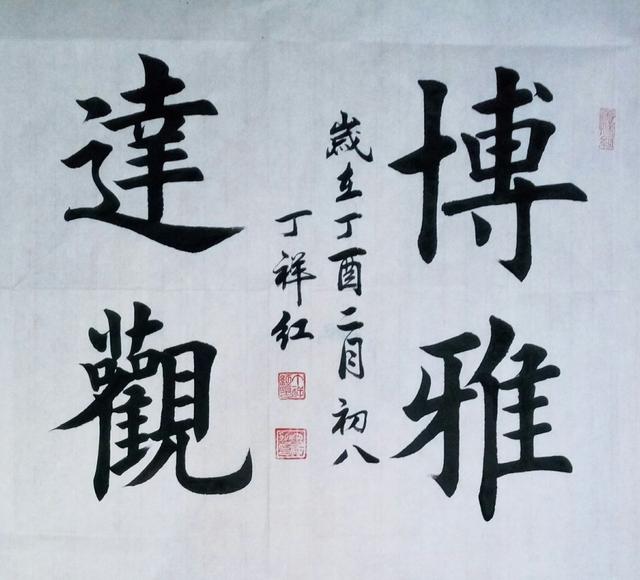 博雅
歲在丁酉二月初八
丁祥红
達觀